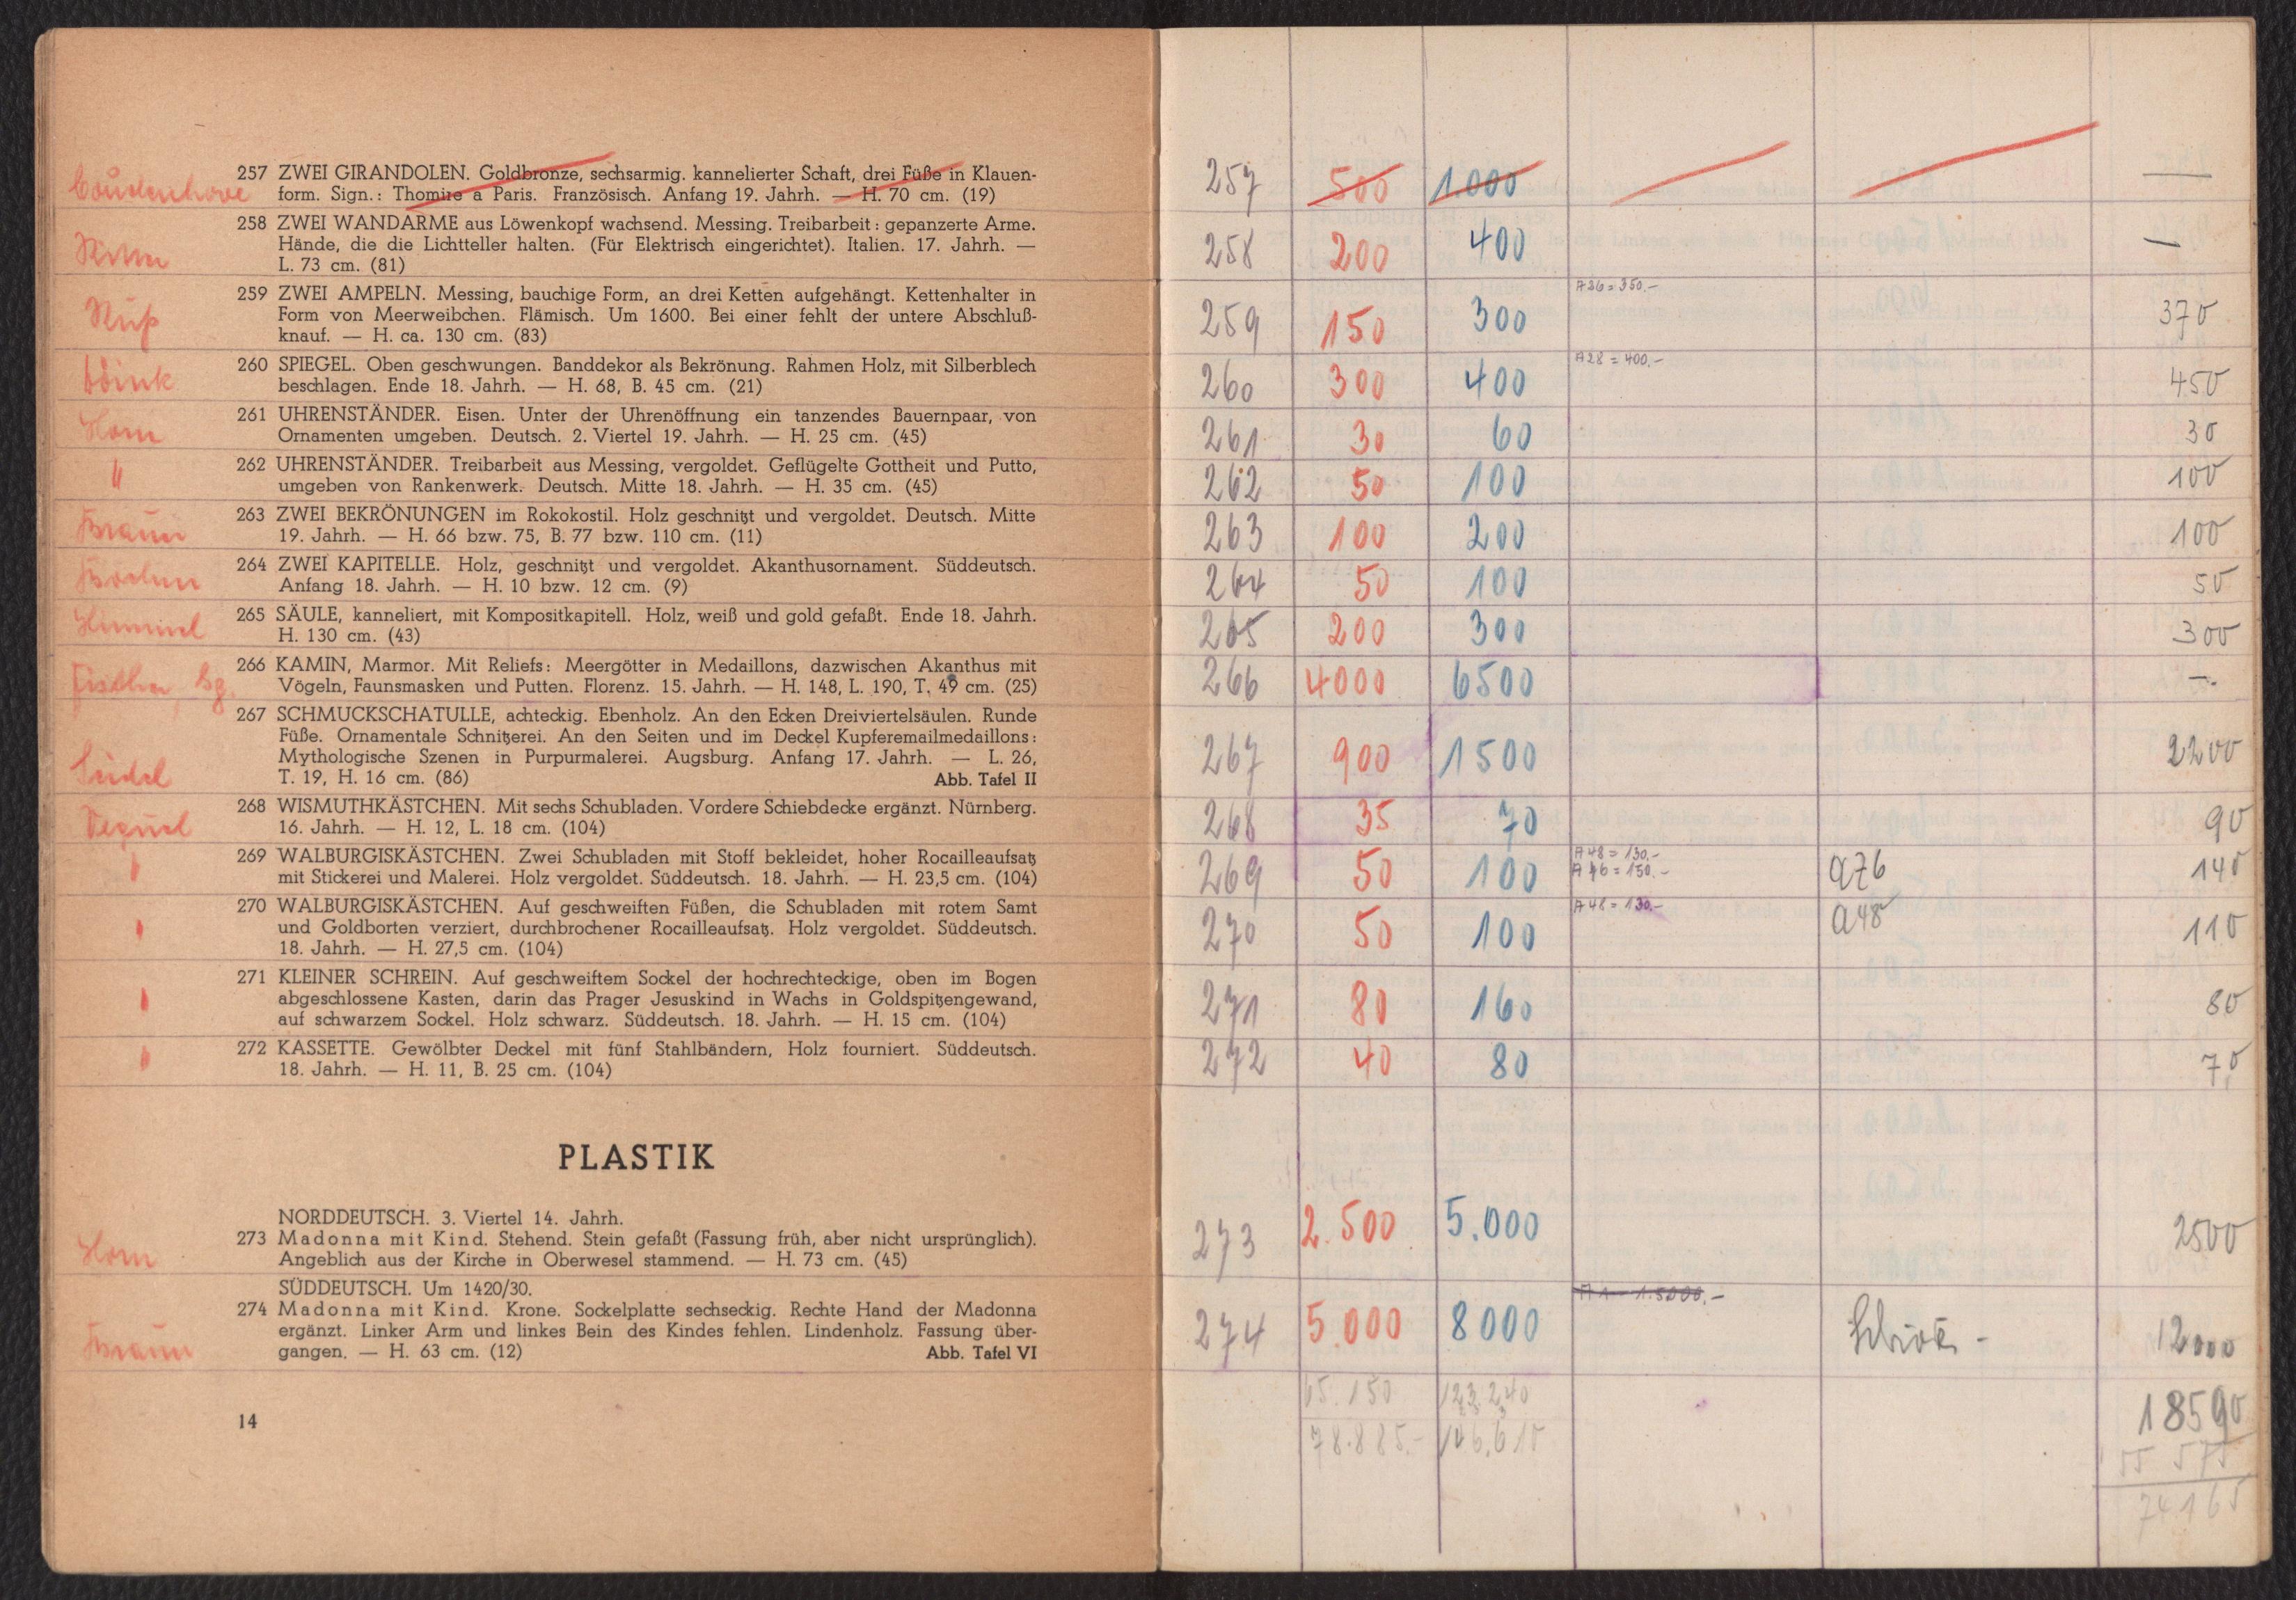 257 ZWEI GIRANDOLEN. Goldbronze, sechsarmig. kannelierter Schaft, drei Füße in Klauen-
form. Sign.: Thomire a Paris. Französisch. Anfang 19. Jahrh. — H. 70 cm. (19)
258 ZWEI WANDARME aus Löwenkopf wachsend. Messing. Treibarbeit: gepanzerte Arme.
Hände, die die Lichtteller halten. (Für Elektrisch eingerichtet). Italien. 17. Jahrh. —
L. 73 cm. (81)
259 ZWEI AMPELN. Messing, bauchige Form, an drei Ketten aufgehängt. Kettenhalter in
Nüß
Form von Meerweibchen. Flämisch. Um 1600. Bei einer fehlt der untere Abschluß-
knauf. — H. ca. 130 cm. (83)
260 SPIEGEL. Oben geschwungen. Banddekor als Bekrönung. Rahmen Holz, mit Silberblech
beschlagen. Ende 18. Jahrh. — H. 68, B. 45 cm. (21)
261 UHRENSTÄNDER. Eisen. Unter der Uhrenöffnung ein tanzendes Bauernpaar, von
Horn
Ornamenten umgeben. Deutsch. 2. Viertel 19. Jahrh. — H. 25 cm. (45)
262 UHRENSTÄNDER. Treibarbeit aus Messing, vergoldet. Geflügelte Gottheit und Putto,
"
umgeben von Rankenwerk. Deutsch. Mitte 18. Jahrh. — H. 35 cm. (45)
263 ZWEI BEKRÖNUNGEN im Rokokostil. Holz geschnitzt und vergoldet. Deutsch. Mitte
Braun
19. Jahrh. — H. 66 bzw. 75, B. 77 bzw. 110 cm. (11)
264 ZWEI KAPITELLE. Holz, geschnitzt und vergoldet. Akanthusornament. Süddeutsch.
Anfang 18. Jahrh. — H. 10 bzw. 12 cm. (9)
265 SÄULE, kanneliert, mit Kompositkapitell. Holz, weiß und gold gefaßt. Ende 18. Jahrh.
Himmel
H. 130 cm. (43)
266 KAMIN, Marmor. Mit Reliefs: Meergötter in Medaillons, dazwischen Akanthus mit
Fischer, Bg.
Vögeln, Faunsmasken und Putten. Florenz. 15. Jahrh. — H. 148, L. 190, T. 49 cm. (25)
267 SCHMUCKSCHATULLE, achteckig. Ebenholz. An den Ecken Dreiviertelsäulen. Runde
Füße. Ornamentale Schnitzerei. An den Seiten und im Deckel Kupferemailmedaillons:
Mythologische Szenen in Purpurmalerei. Augsburg. Anfang 17. Jahrh. — L. 26,
Seidel
T. 19, H. 16 cm. (86) Abb. Tafel II
268 WISMUTHKÄSTCHEN. Mit sechs Schubladen. Vordere Schiebdecke ergänzt. Nürnberg.
16. Jahrh. — H. 12, L. 18 cm. (104)
269 WALBURGISKÄSTCHEN. Zwei Schubladen mit Stoff bekleidet, hoher Rocailleaufsatz
mit Stickerei und Malerei. Holz vergoldet. Süddeutsch. 18. Jahrh. — H. 23,5 cm. (104)
270 WALBURGISKÄSTCHEN. Auf geschweiften Füßen, die Schubladen mit rotem Samt
und Goldborten verziert, durchbrochener Rocailleaufsatz. Holz vergoldet. Süddeutsch.
18. Jahrh. — H. 27,5 cm. (104)
271 KLEINER SCHREIN. Auf geschweiftem Sockel der hochrechteckige, oben im Bogen
abgeschlossene Kasten, darin das Prager Jesuskind in Wachs in Goldspitzengewand,
auf schwarzem Sockel. Holz schwarz. Süddeutsch. 18. Jahrh. — H. 15 cm. (104)
272 KASSETTE. Gewölbter Deckel mit fünf Stahlbändern, Holz fourniert. Süddeutsch.
18. Jahrh. — H. 11, B. 25 cm. (104)
PLASTIK
NORDDEUTSCH. 3. Viertel 14. Jahrh.
273 Madonna mit Kind. Stehend. Stein gefaßt (Fassung früh, aber nicht ursprünglich).
Horn
Angeblich aus der Kirche in Oberwesel stammend. — H. 73 cm. (45)
SÜDDEUTSCH. Um 1420/30.
274 Madonna mit Kind. Krone. Sockelplatte sechseckig. Rechte Hand der Madonna
ergänzt. Linker Arm und linkes Bein des Kindes fehlen. Lindenholz. Fassung über-
Braun
gangen. — H. 63 cm. (12) Abb. Tafel VI
14
257 500 1.000 —
258 200 400 —
A 36 = 350.–
259 150 300 370
A 28 = 400.–
260 300 400 450
261 30 60 30
262 50 100 100
263 100 200 100
264 50 100 50
265 200 300 300
266 4000 6500 —.
267 900 1500 2200
268 35 70 90
A 48 = 130.–
269 50 100 A 76 = 150.– a76 140
A 48 = 130.–
270 50 100 a48 110
271 80 160 80
272 40 80 70
273 2.500 5.000 2500
274 5.000 8000 12000
65.150 123.240 18590
78.885.– 146.610 55 575
74165